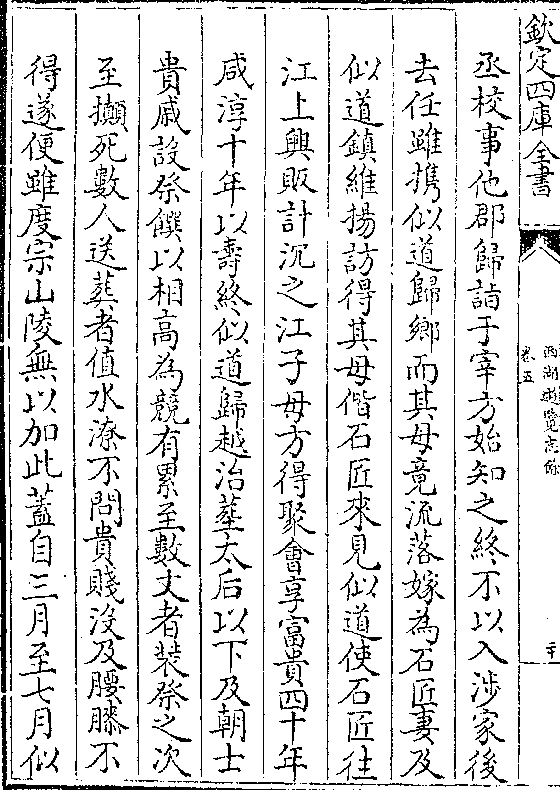 欽定四庫全書
西湖遊覽志餘
卷五
二十
丞校事他郡歸詣于宰方始知之終不以入涉家後
去任雖携似道歸鄉而其母竟流落嫁為石匠妻及
似道鎮維揚訪得其母偕石匠來見似道使石匠往
江上興販計沉之江子母方得聚會享富貴四十年
咸淳十年以壽終似道歸越治塟太后以下及朝士
貴戚設祭饌以相高為競有累至數丈者裝祭之次
至攧死數人送葬者值水潦不問貴賤沒及腰膝不
得遂便雖度宗山陵無以加此蓋自三月至七月似